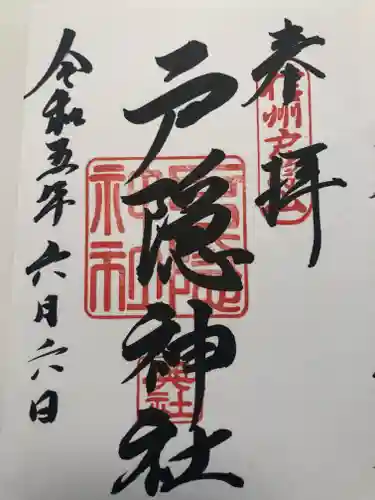 奉拝
信州戸隠山
戸隠神社
戸隠神社
奥社
令和五年六月六日